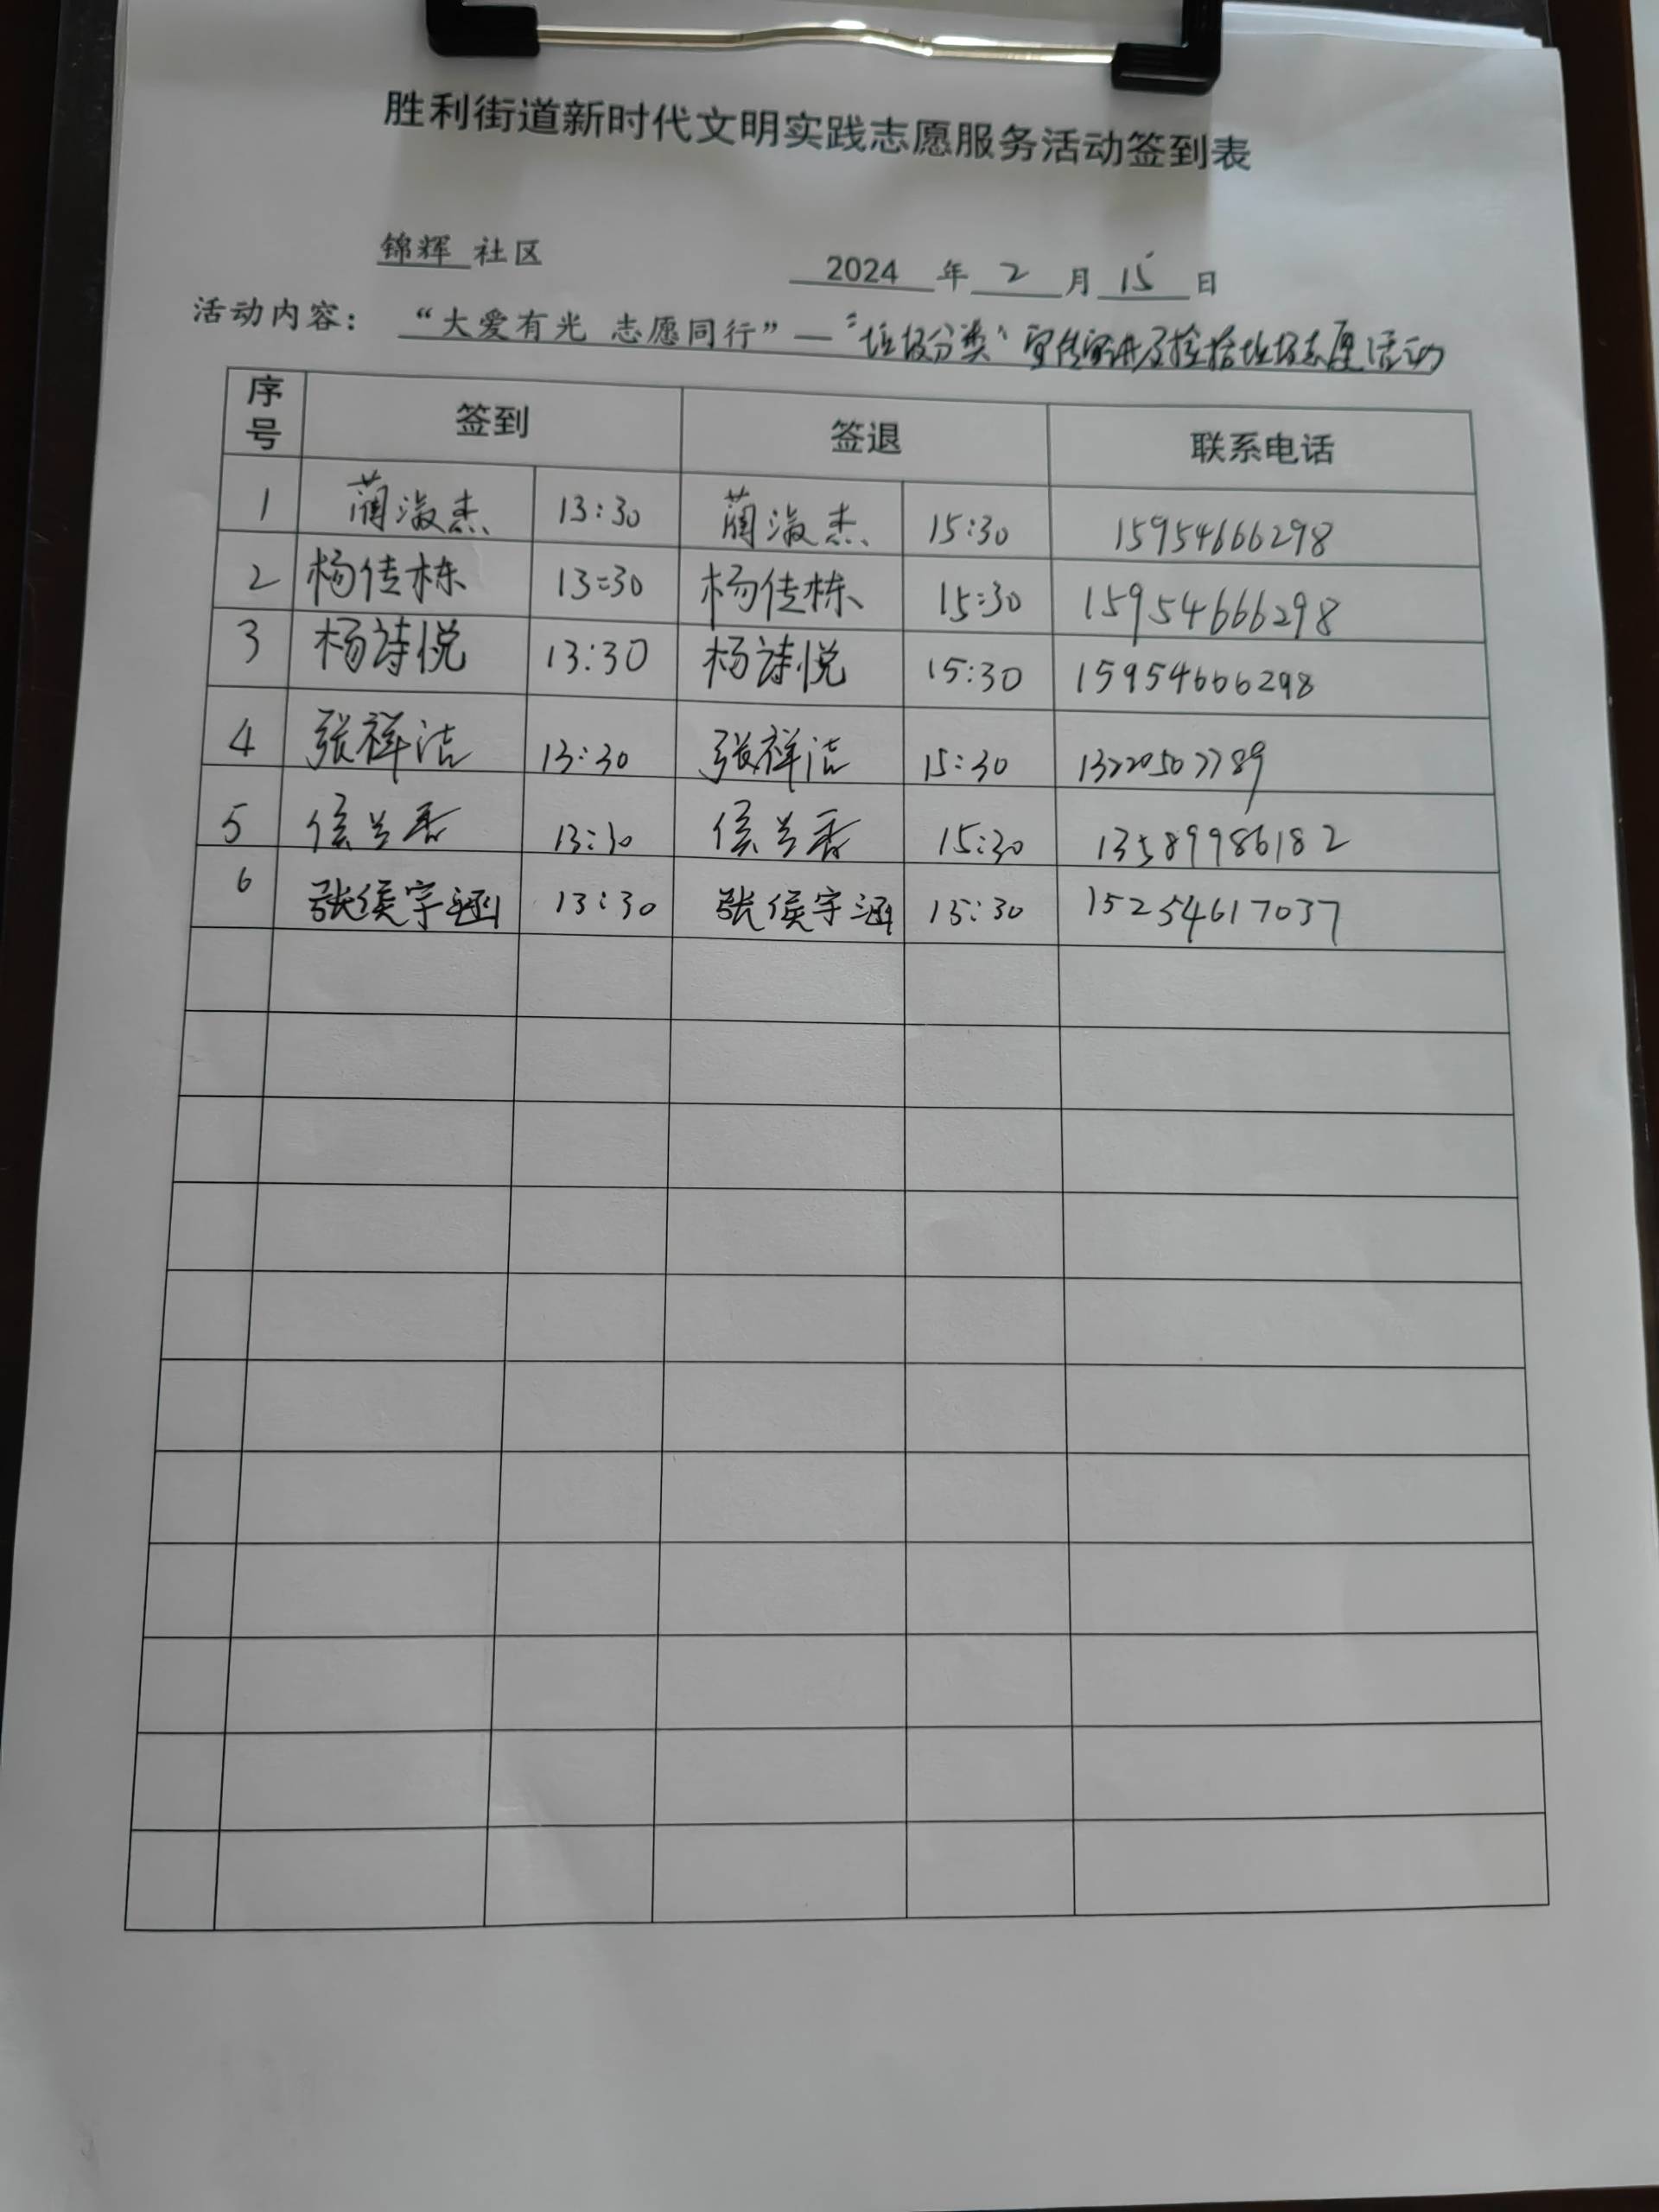 胜利街道新时代文明实践志愿服务活动签到表
锦辉 社区 2024 年 2 月 15 日
活动内容： “大爱有光 志愿同行”—“垃圾分类”宣传宣讲及捡拾垃圾志愿活动
序号 签到 签退 联系电话
1 蔺淑杰 13:30 蔺淑杰 15:30 15954666298
2 杨佳栋 13:30 杨佳栋 15:30 15954666298
3 杨诗悦 13:30 杨诗悦 15:30 15954666298
4 张祥洁 13:30 张祥洁 15:30 13220507789
5 侯兰香 13:30 侯兰香 15:30 13589986182
6 张侯宇涵 13:30 张侯宇涵 15:30 15254617037